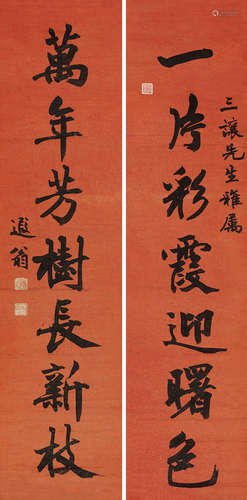 三讓先生雅屬
一片彩霞迎曙色
萬年芳樹長新枝
遐翁